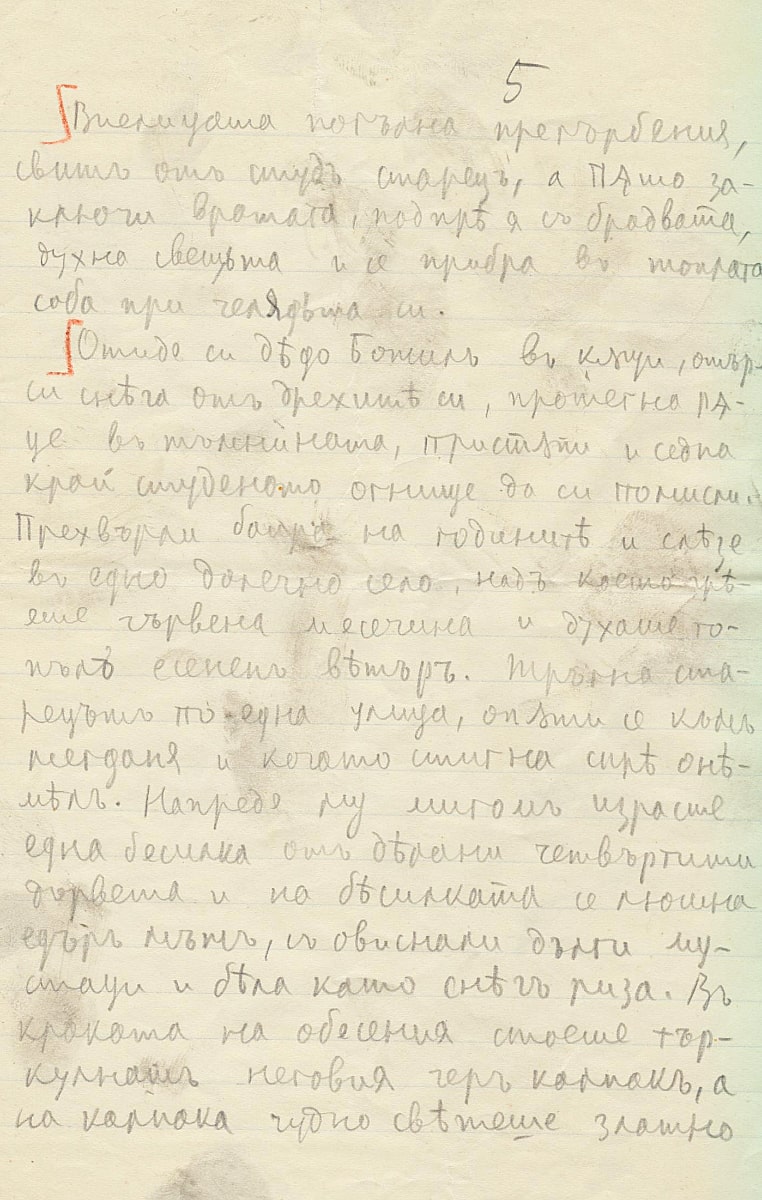 5
Виелицата погълна прегърбения,
свитъ отъ студъ старецъ, а Пѫто за-
ключи вратата, подпрѣ я съ брадвата,
духна свещьта и се прибра въ топлата
соба при челядьта си.
Отиде си дѣдо Божилъ въ кѫщи, отър-
си снѣга отъ дрехитѣ си, протегна рѫ-
це въ тъмнината, пристѫпи и седна
край студеното огнище да си помисли.
Прехвърли баира на годинитѣ и слѣзе
въ едно далечно село, надъ което грѣ-
еше червена месечина и духаше то-
пълъ есененъ вѣтъръ. Тръгна ста-
рецътъ по една улица, опѫти се къмъ
мегданя и когато стигна спрѣ онѣ-
мѣлъ. Напреде му мигомъ израсте
една бесилка отъ дѣлани четвъртити
дървета и на бѣсилката се люшна
едъръ мъжъ, съ овиснали дълги му-
стаци и бѣла като снѣгъ риза. Въ
краката на обесения стоеше тър-
кулнатъ неговия черъ калпакъ, а
на калпака чудно свѣтеше златно